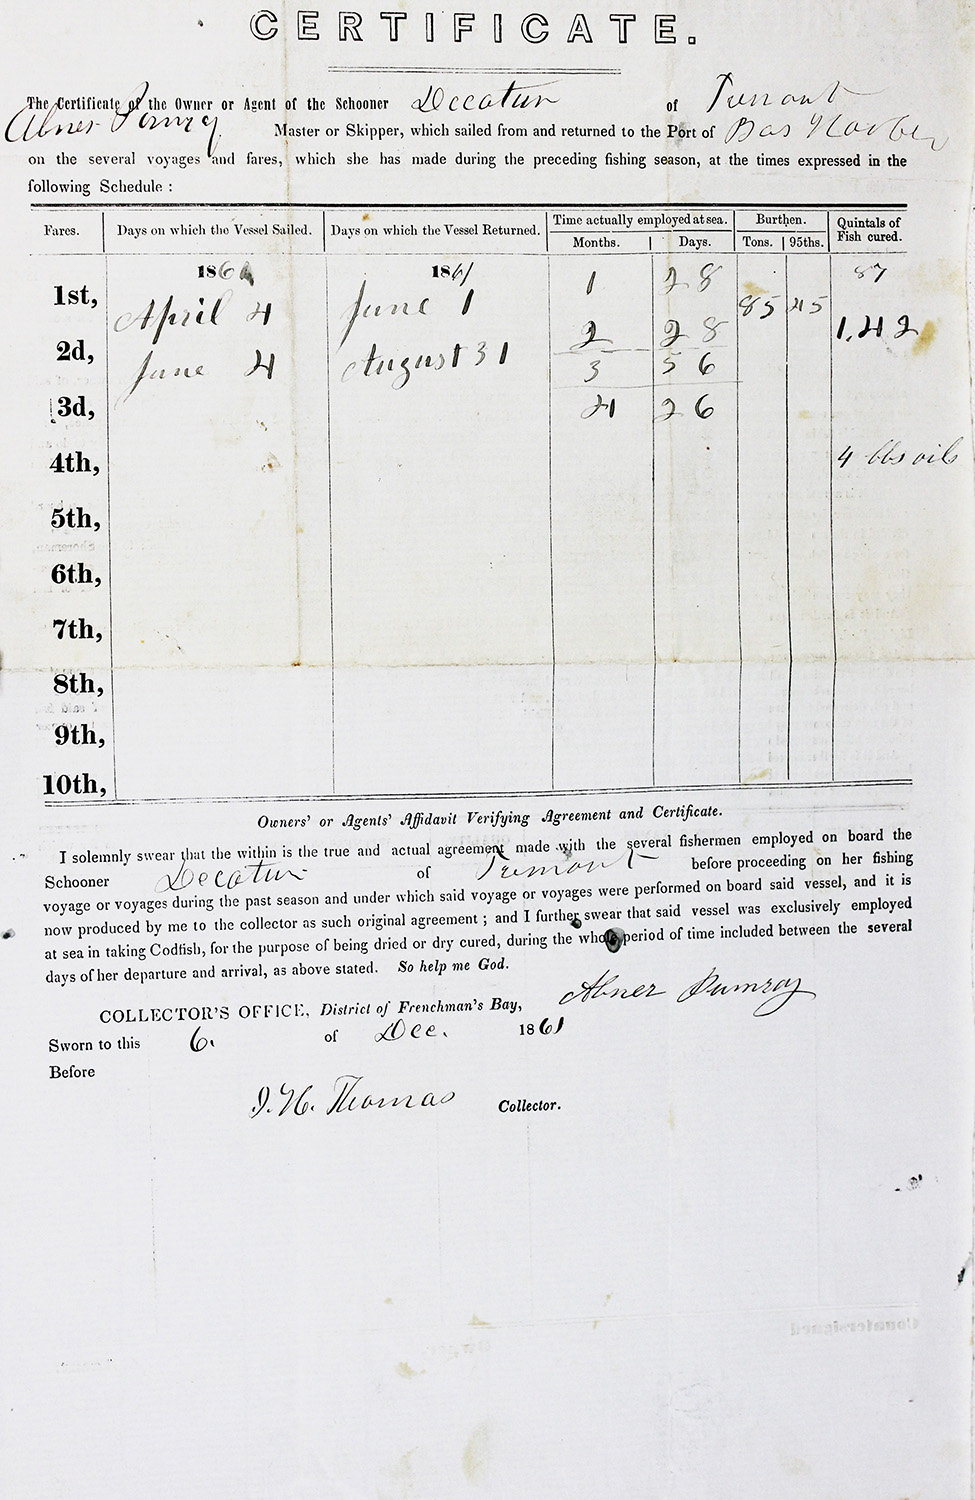 CERTIFICATE.
The Certificate of the Owner or Agent of the Schooner Decatur of Tremont
Abner Pomroy Master or Skipper, which sailed from and returned to the Port of Bas Harber
on the several voyages and fares, which she has made during the preceding fishing season, at the times expressed in the
following Schedule :
Fares. Days on which the Vessel Sailed. Days on which the Vessel Returned. Time actually employed at sea. Burthen. Quintals of Fish cured.
Months. Days. Tons. 95ths.
186 1861
1st, April 4 June 1 1 28 85 45 87
2d, June 4 August 31 2 28 1,42
3 56
3d, 4 26
4th, 4 bbs oils
5th,
6th,
7th,
8th,
9th,
10th,
Owners' or Agents' Affidavit Verifying Agreement and Certificate.
I solemnly swear that the within is the true and actual agreement made with the several fishermen employed on board the
Schooner Decatur of Tremont before proceeding on her fishing
voyage or voyages during the past season and under which said voyage or voyages were performed on board said vessel, and it is
now produced by me to the collector as such original agreement ; and I further swear that said vessel was exclusively employed
at sea in taking Codfish, for the purpose of being dried or dry cured, during the whole period of time included between the several
days of her departure and arrival, as above stated. So help me God.
Abner Pumroy
COLLECTOR'S OFFICE, District of Frenchman's Bay,
Sworn to this 6. of Dec. 1861
Before
J. H. Thomas Collector.